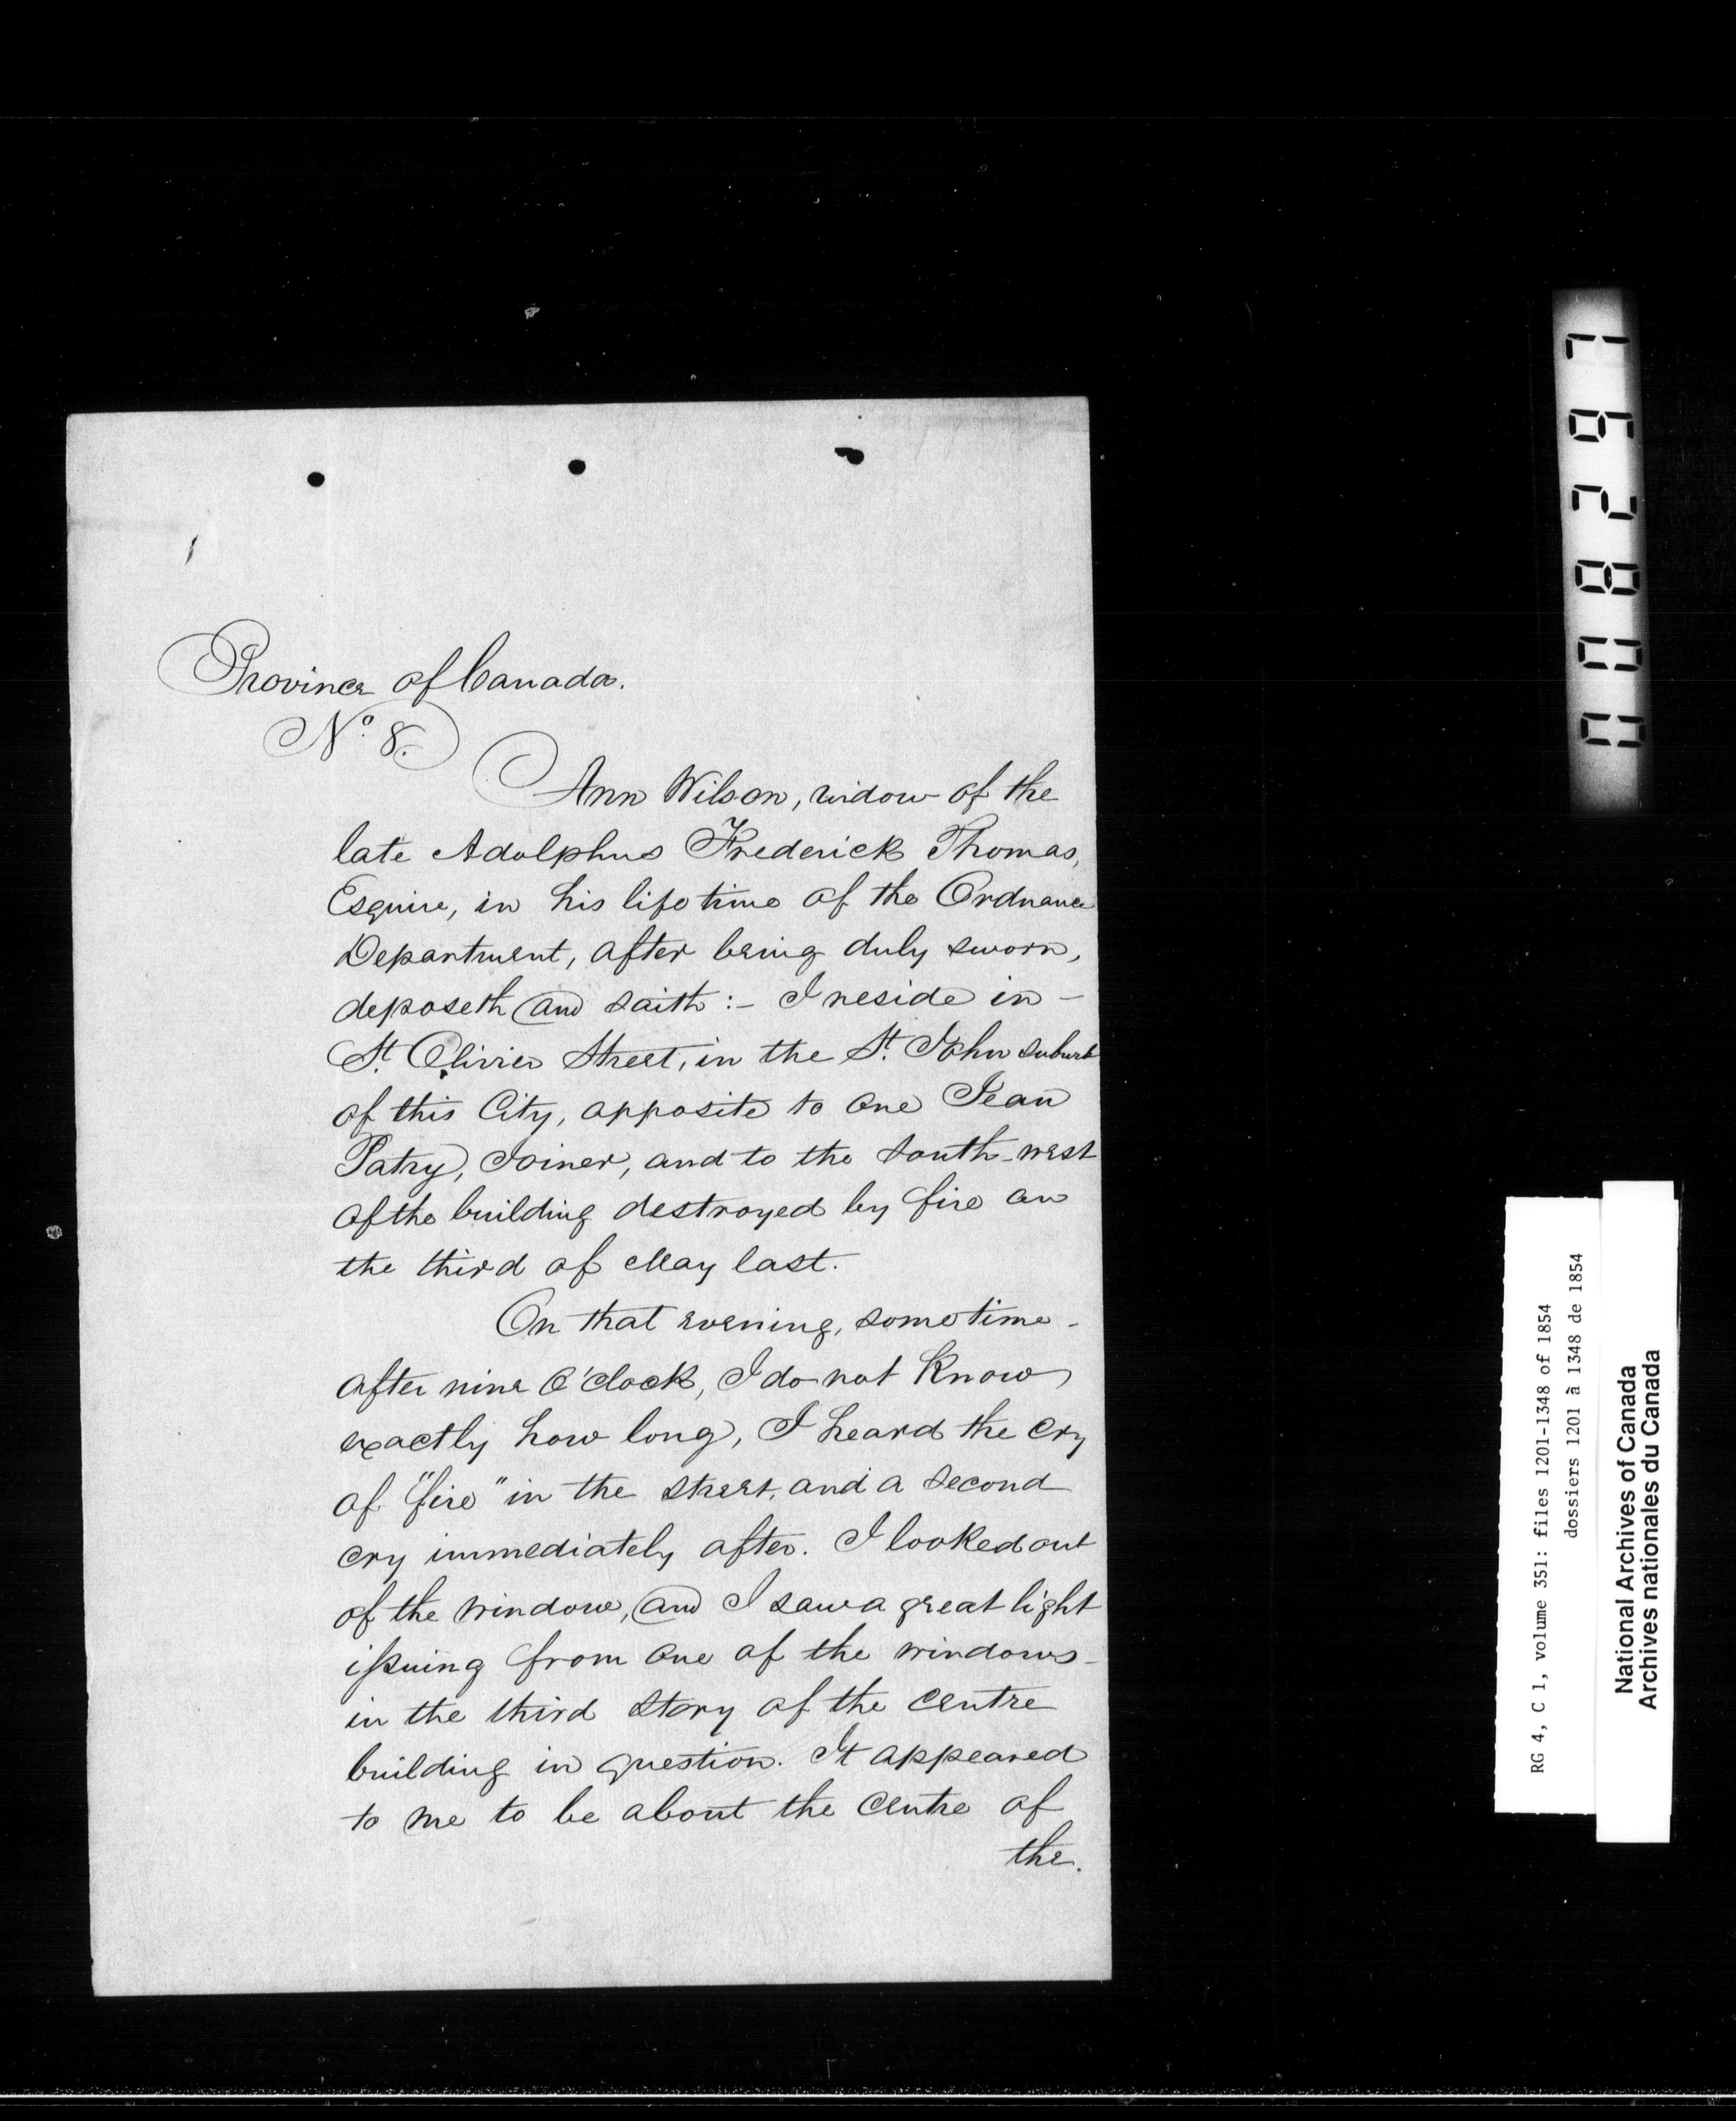 Province of Canada.
No. 8.
Ann Wilson, widow of the
late Adolphus Frederick Thomas,
Esquire, in his lifetime of the Ordnance
Department, after being duly sworn,
deposeth and saith :- I reside in -
St. Olivier Street, in the St. John suburb
of this City, opposite to one Jean
Patry, Joiner, and to the South-west
of the building destroyed by fire on
the third of May last.
On that evening, sometime -
after nine O'Clock, I do not Know
exactly how long, I heard the cry
of "fire" in the street, and a second
cry immediately after. I looked out
of the window, and I saw a great light
issuing from one of the windows -
in the third story of the centre
building in question. It appeared
to me to be about the centre of
the.
008297
RG 4, C 1, volume 351: files 1201-1348 of 1854
dossiers 1201 à 1348 de 1854
National Archives of Canada
Archives nationales du Canada